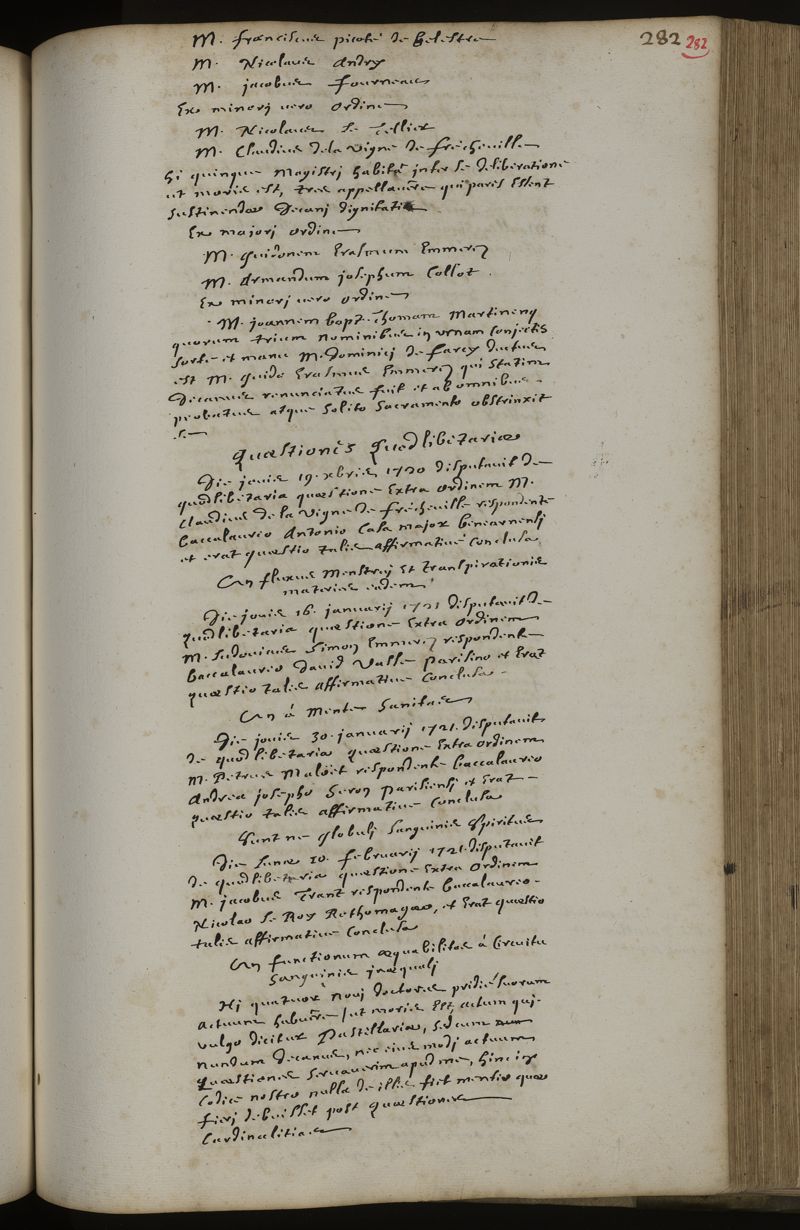 282 282
M. franciscus picoté de Belestre
M. Nicolaus Andry
M. jacobus fourneau
Ex minorj vero ordine
M. Nicolaus Le Tellier
M. Claudius de la Vigne de frécheville
hi quinque Magistrj habitâ inter se deliberatione
ut moris est, tres appellavêre qui pares Essent
sustinendae Decanj dignitatis
Ex majorj ordine
M. Guidonem Erasmum Emmerez
M. Armandum josephum Collot.
Ex minorj vero ordine
M. joannem bapt. Thomam Martineng
quorum trium nominibus in urnam Conjectis
sorte et manu M. Dominicj de farcy ductus
est M. Guido Erasmus Emmerez qui statim
Decanus renunciatus fuit et ab omnibus
probatus atque solito sacramento obstrinxit
se
Quaestiones Quodlibetariae
Die jovis 19. xbris 1720 disputavit de
quodlibetaria quaestione Extra ordinem M.
Claudius de la Vigne de frécheville respondente
baccalaureo Antonio Casa major benearnensj
et erat quaestio talis affirmativè Conclusa
An fluxus Menstruj Et transpirationis
materies eadem
Die jovis 16. januarij 1721 disputavit de
quodlibetaria quaestione Extra ordinem
M. Ludovicus Simon Emmerez respondente
baccalaureo David Vasse Parisino et Erat
quaestio talis affirmative Conclusa
An à Mente Sanitas
Die jovis 30. januarij 1721. disputavit
de quodlibetaria quaestione Extra ordinem
M. Petrus Maloët respondente baccalaureo
Andrea josepho Seron parisiensj et Erat
quaestio talis affirmative Conclusa
Sunt ne globulj sanguinis Spiritus
Die Lunae 10. februarij 1721. disputavit
de quodlibetaria quaestione Extra ordinem
M. jacobus Trant respondente baccalaureo
Nicolao Le Roy Rothomagaeo, et Erat quaestio
talis affirmative Conclusa
An functionum aequabilitas à Circuitu
sanguinis inaequalj
Hj quatuor novj doctores pridiè suorum
actuum habuêre / ut moris Est, actum quj
vulgo dicitur Pastillaria, sed cum
nundum Decanus, nec ejus modj actuum
Quaestiones servaverim apud me, hinc in
Codice nostro nulla de illis fiet mentio quae
fierj debuisset post quaestiones
Cardinalitias